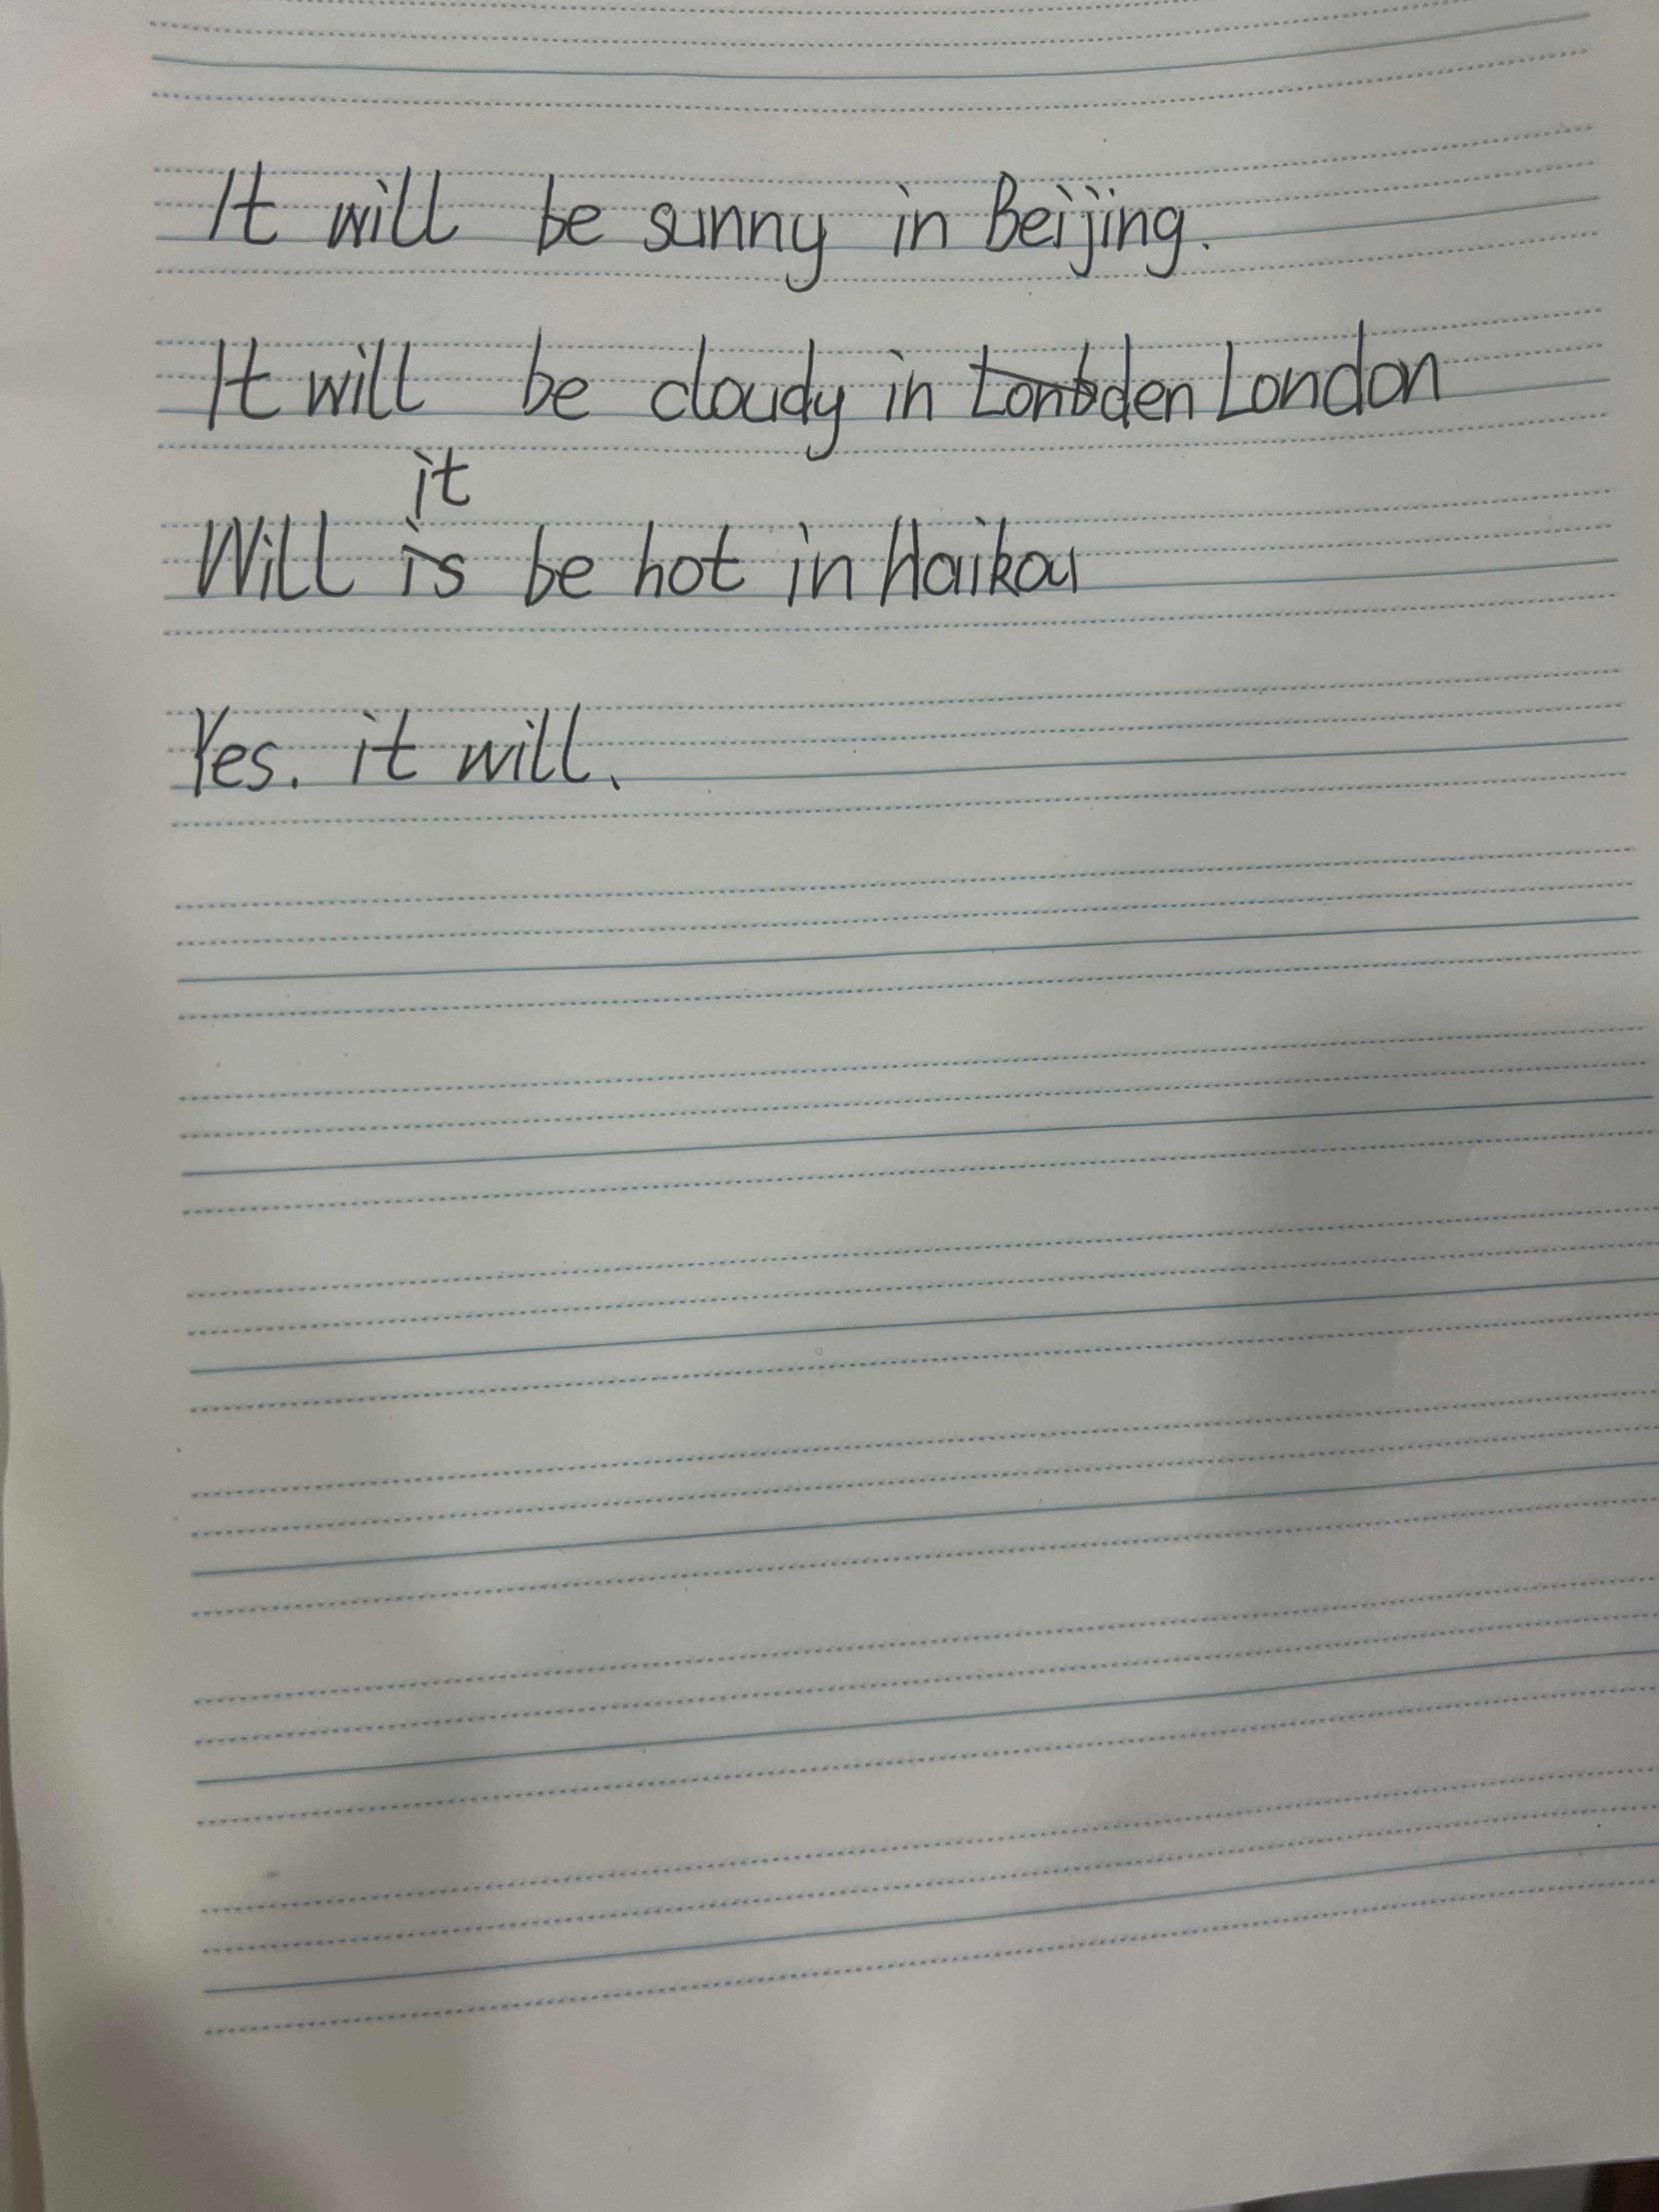 It will be sunny in Beijing.
It will be cloudy in London
it
Will is be hot in Haikou
Yes. it will.